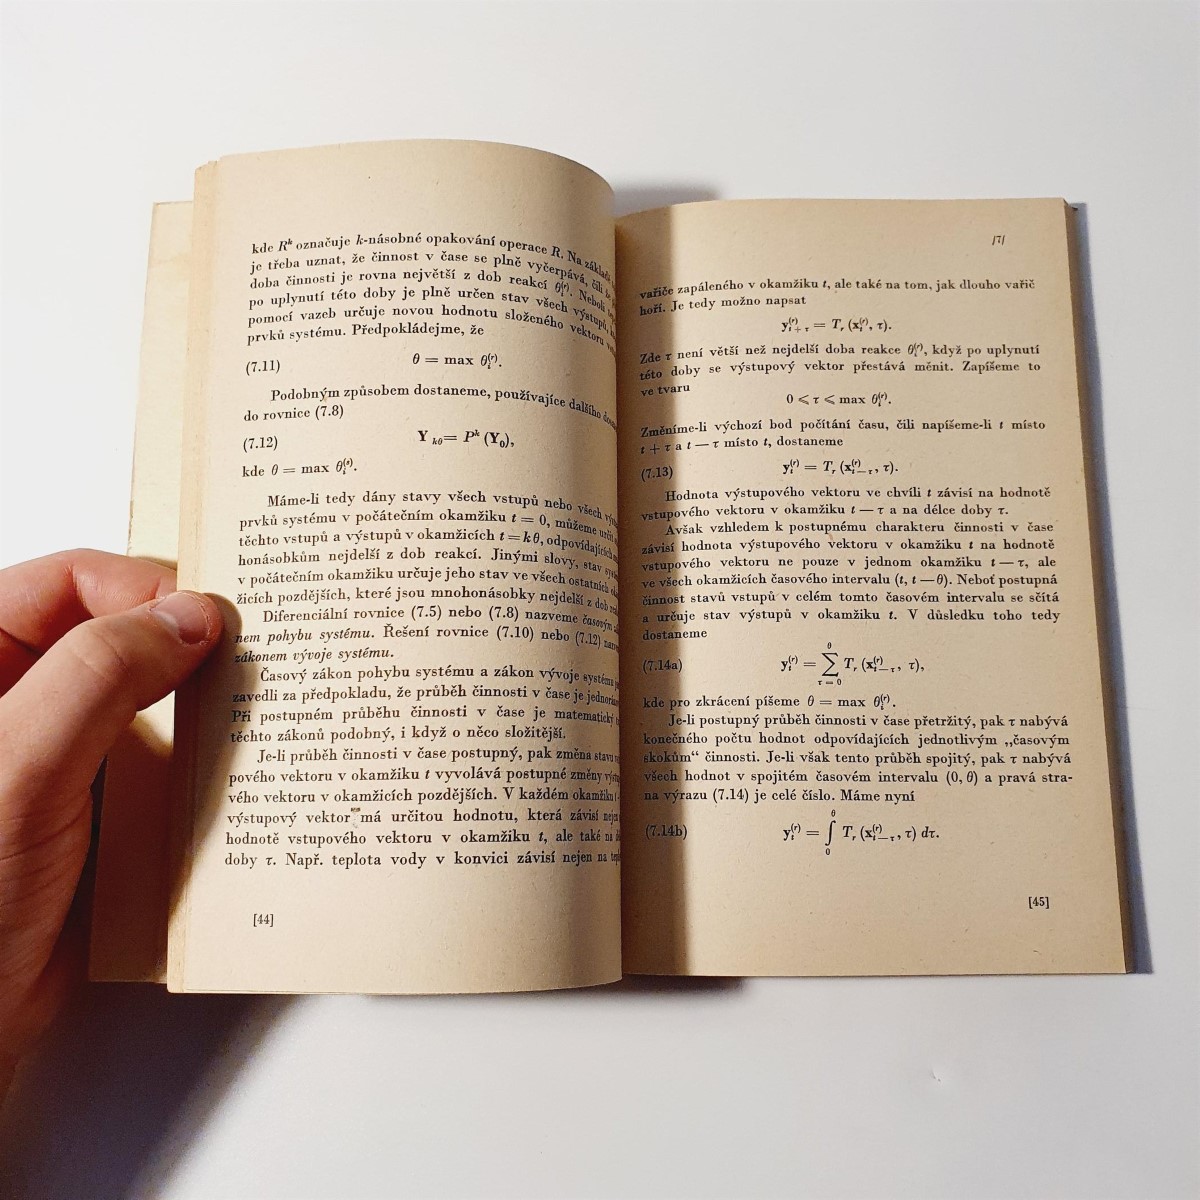 kde Rᵏ označuje k-násobné opakování operace R. Na základě
je třeba uznat, že činnost v čase se plně vyčerpává, čili že
doba činnosti je rovna největší z dob reakcí θᵢ⁽ʳ⁾. Neboli
po uplynutí této doby je plně určen stav všech výstupů,
pomocí vazeb určuje novou hodnotu složeného vektoru
prvků systému. Předpokládejme, že
(7.11) θ = max θᵢ⁽ʳ⁾.
Podobným způsobem dostaneme, používajíce dalšího
do rovnice (7.8)
(7.12) Y kθ = Pᵏ (Y₀),
kde θ = max θᵢ⁽ˢ⁾.
Máme-li tedy dány stavy všech vstupů nebo všech
prvků systému v počátečním okamžiku t = 0, můžeme určit
těchto vstupů a výstupů v okamžicích t = kθ, odpovídajících
honásobkům nejdelší z dob reakcí. Jinými slovy, stav
v počátečním okamžiku určuje jeho stav ve všech ostatních
žicích pozdějších, které jsou mnohonásobky nejdelší z dob
Diferenciální rovnice (7.5) nebo (7.8) nazveme časovým
nem pohybu systému. Řešení rovnice (7.10) nebo (7.12)
zákonem vývoje systému.
Časový zákon pohybu systému a zákon vývoje systému
zavedli za předpokladu, že průběh činnosti v čase je
Při postupném průběhu činnosti v čase je matematický
těchto zákonů podobný, i když o něco složitější.
Je-li průběh činnosti v čase postupný, pak změna stavu
pového vektoru v okamžiku t vyvolává postupné změny
vého vektoru v okamžicích pozdějších. V každém okamžiku
výstupový vektor má určitou hodnotu, která závisí nejen
hodnotě vstupového vektoru v okamžiku t, ale také na
doby τ. Např. teplota vody v konvici závisí nejen na
[44]
/7/
vařiče zapáleného v okamžiku t, ale také na tom, jak dlouho vařič
hoří. Je tedy možno napsat
y⁽ʳ⁾ₜ₊τ = Tᵣ (xₜ⁽ʳ⁾, τ).
Zde τ není větší než nejdelší doba reakce θᵢ⁽ʳ⁾, když po uplynutí
této doby se výstupový vektor přestává měnit. Zapíšeme to
ve tvaru
0 ⩽ τ ⩽ max θᵢ⁽ʳ⁾.
Změníme-li výchozí bod počítání času, čili napíšeme-li t místo
t + τ a t — τ místo t, dostaneme
(7.13) yₜ⁽ʳ⁾ = Tᵣ (x⁽ʳ⁾ₜ₋τ, τ).
Hodnota výstupového vektoru ve chvíli t závisí na hodnotě
vstupového vektoru v okamžiku t — τ a na délce doby τ.
Avšak vzhledem k postupnému charakteru činnosti v čase
závisí hodnota výstupového vektoru v okamžiku t na hodnotě
vstupového vektoru ne pouze v jednom okamžiku t — τ, ale
ve všech okamžicích časového intervalu (t, t — θ). Neboť postupná
činnost stavů vstupů v celém tomto časovém intervalu se sčítá
a určuje stav výstupů v okamžiku t. V důsledku toho tedy
dostaneme
(7.14a) yₜ⁽ʳ⁾ = θ ∑ τ = 0 Tᵣ (x⁽ʳ⁾ₜ₋τ, τ),
kde pro zkrácení píšeme θ = max θᵢ⁽ʳ⁾.
Je-li postupný průběh činnosti v čase přetržitý, pak τ nabývá
konečného počtu hodnot odpovídajících jednotlivým „časovým
skokům“ činnosti. Je-li však tento průběh spojitý, pak τ nabývá
všech hodnot v spojitém časovém intervalu (0, θ) a pravá stra-
na výrazu (7.14) je celé číslo. Máme nyní
(7.14b) yₜ⁽ʳ⁾ = θ ∫ 0 Tᵣ (x⁽ʳ⁾ₜ₋τ, τ) dτ.
[45]